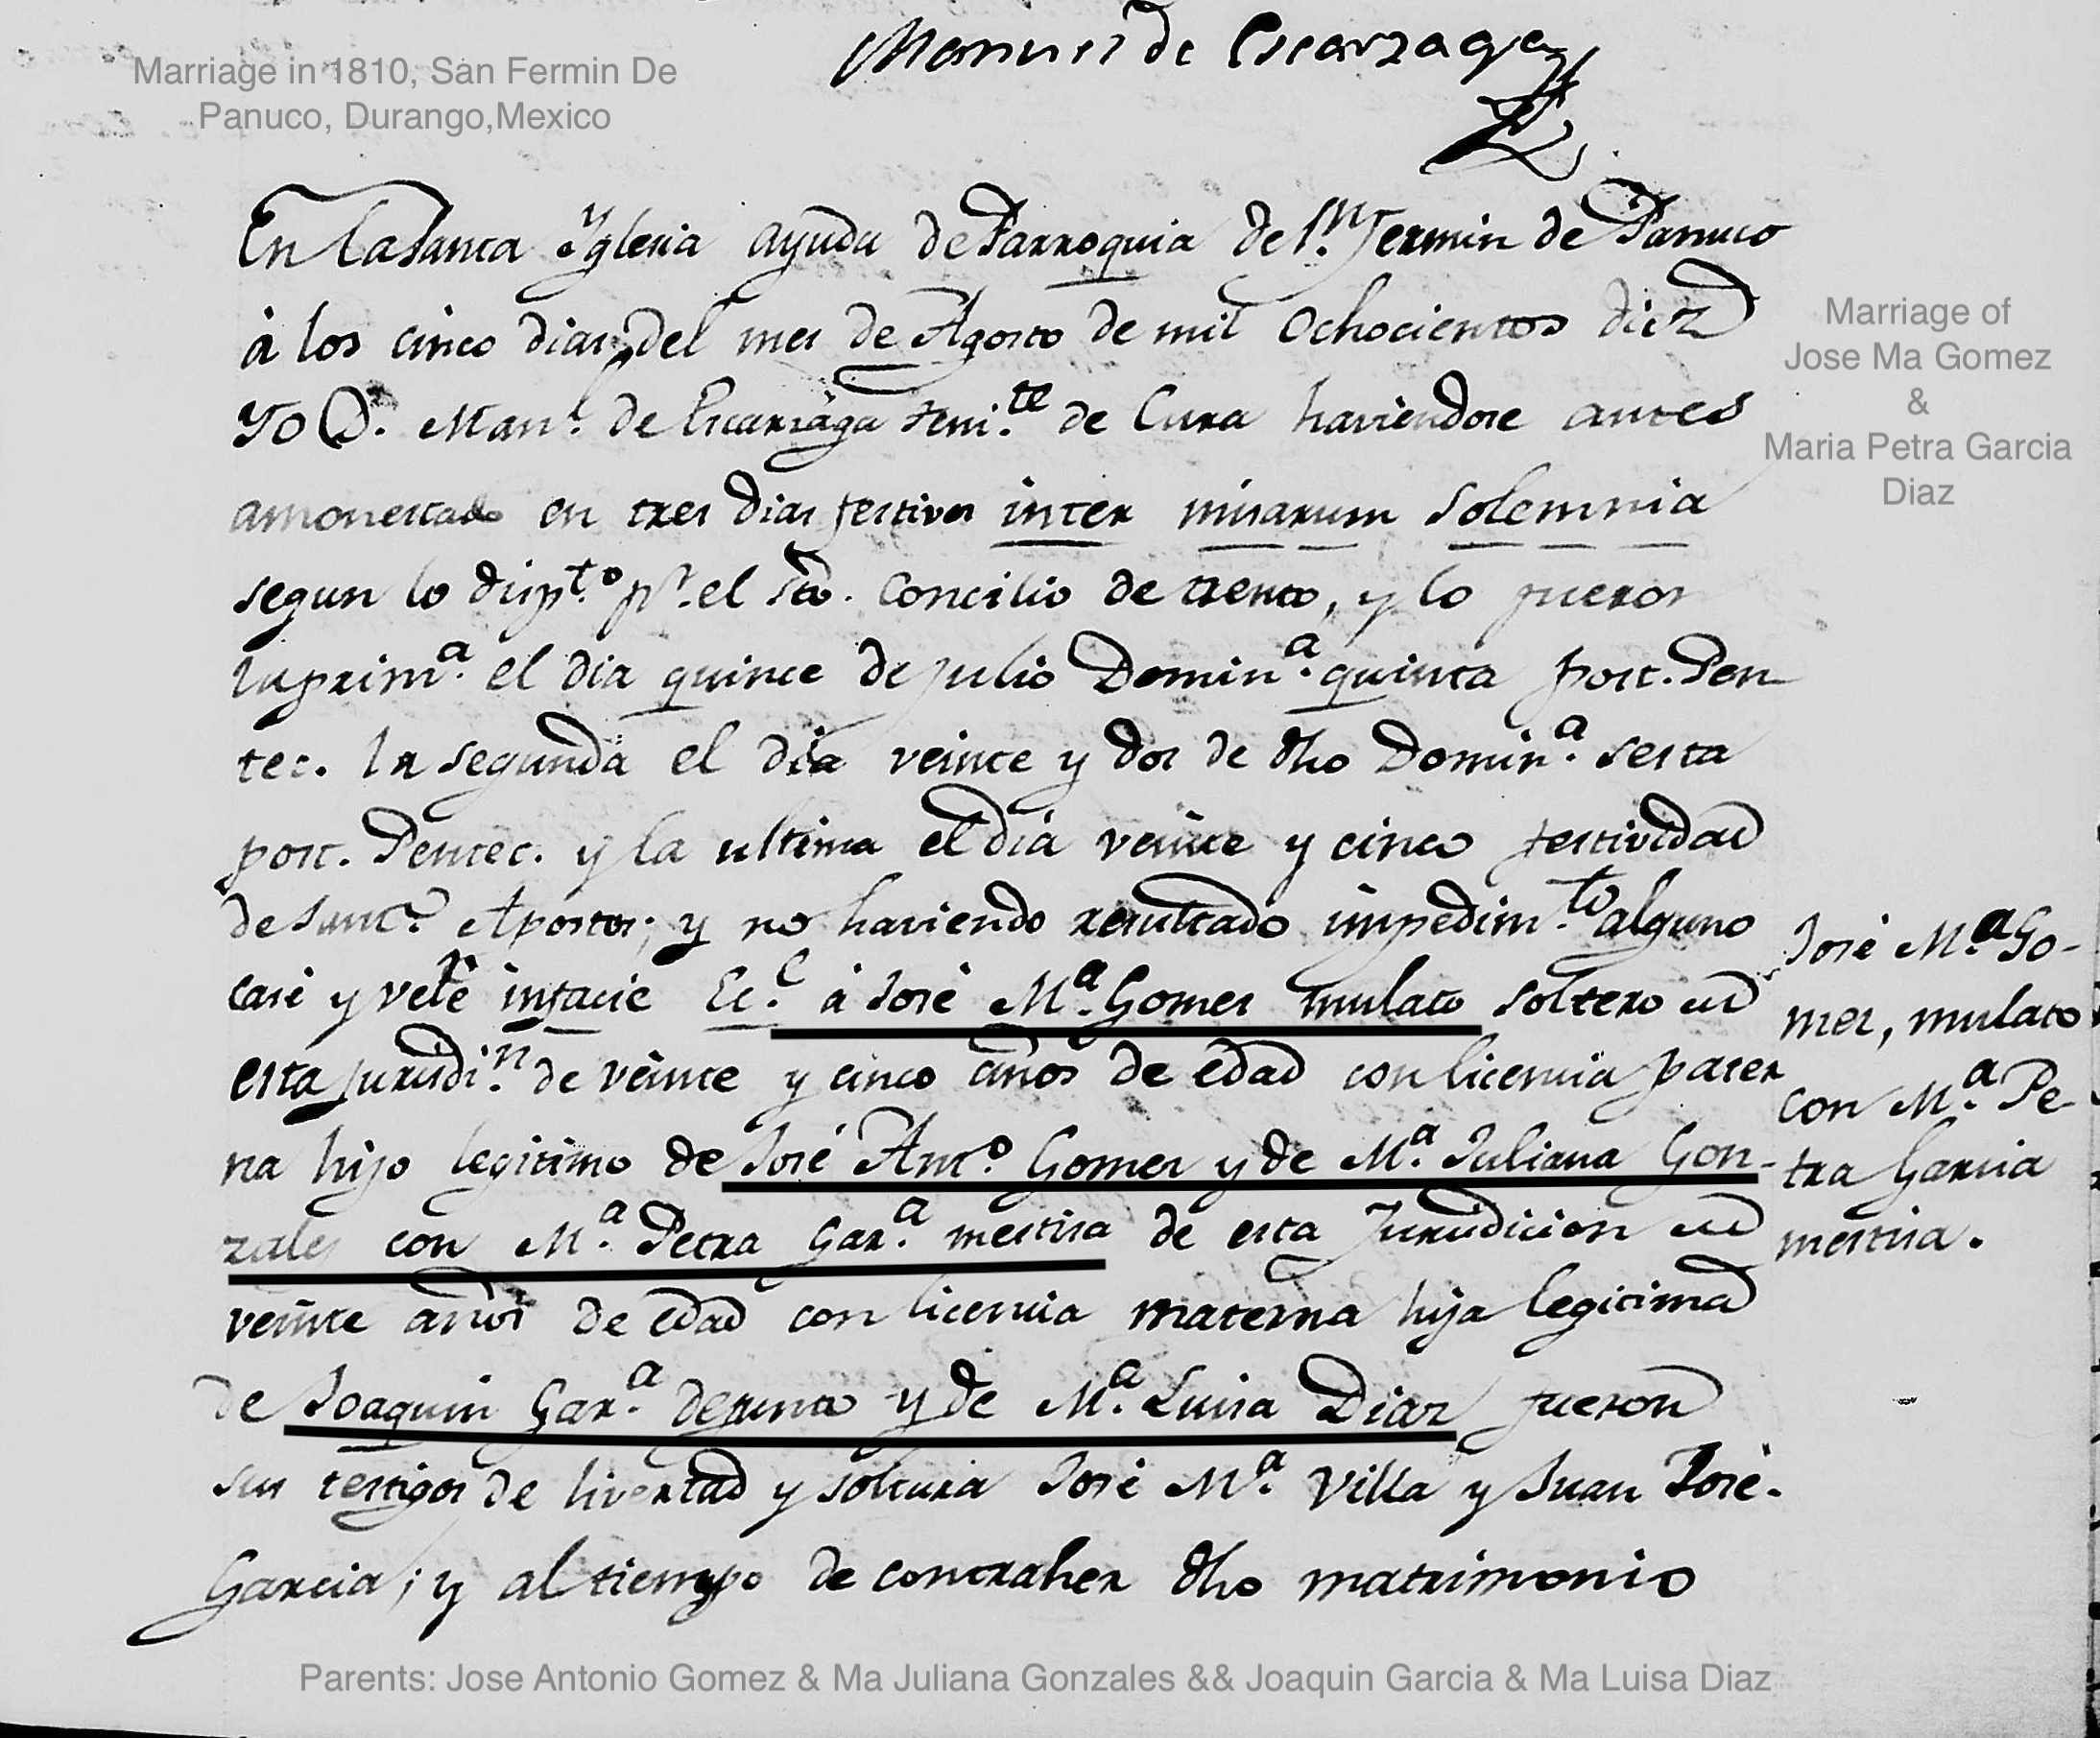 Manuel de Escarzaga
Marriage in 1810, San Fermin De
Panuco, Durango,Mexico
En la Santa Yglesia ayuda de Parroquia de Sn. Fermin de Panuco
á los cinco dias del mes de Agosto de mil ochocientos diez
Yo D. Manl. de Escarzaga teni.te de Cura haviendose antes
amonestado en tres dias festivos inter misarum solemnia
segun lo disp.to pr. el Sto. Concilio de trento, y lo fueron
la prim.a el dia quince de julio Domin.a quinta post. Pen
tec. la segunda el dia veinte y dos de dho Domin.a sesta
post. Pentec. y la ultima el dia veinte y cinco festividad
de Apostol; y no haviendo resultado impedim.to alguno
casé y velé infacie Ec.e á José M.a Gomes mulato soltero de
esta jurisdi.n de veinte y cinco años de edad con licencia pater
na hijo legitimo de José Ant.o Gomes y de M.a Juliana Gon-
zales con M.a Petra Gar.a mestisa de esta Jurisdicion de
veinte años de edad con licencia materna hija legitima
de Joaquin Gar.a defunto y de M.a Luisa Diaz fueron
sus testigos de livertad y soltura José M.a Villa y Juan José
Garcia; y al tiempo de contraher dho matrimonio
Marriage of
Jose Ma Gomez
&
Maria Petra Garcia
Diaz
José M.a Go-
mes, mulato
con M.a Pe-
tra Garcia
mestisa.
Parents: Jose Antonio Gomez & Ma Juliana Gonzales && Joaquin Garcia & Ma Luisa Diaz